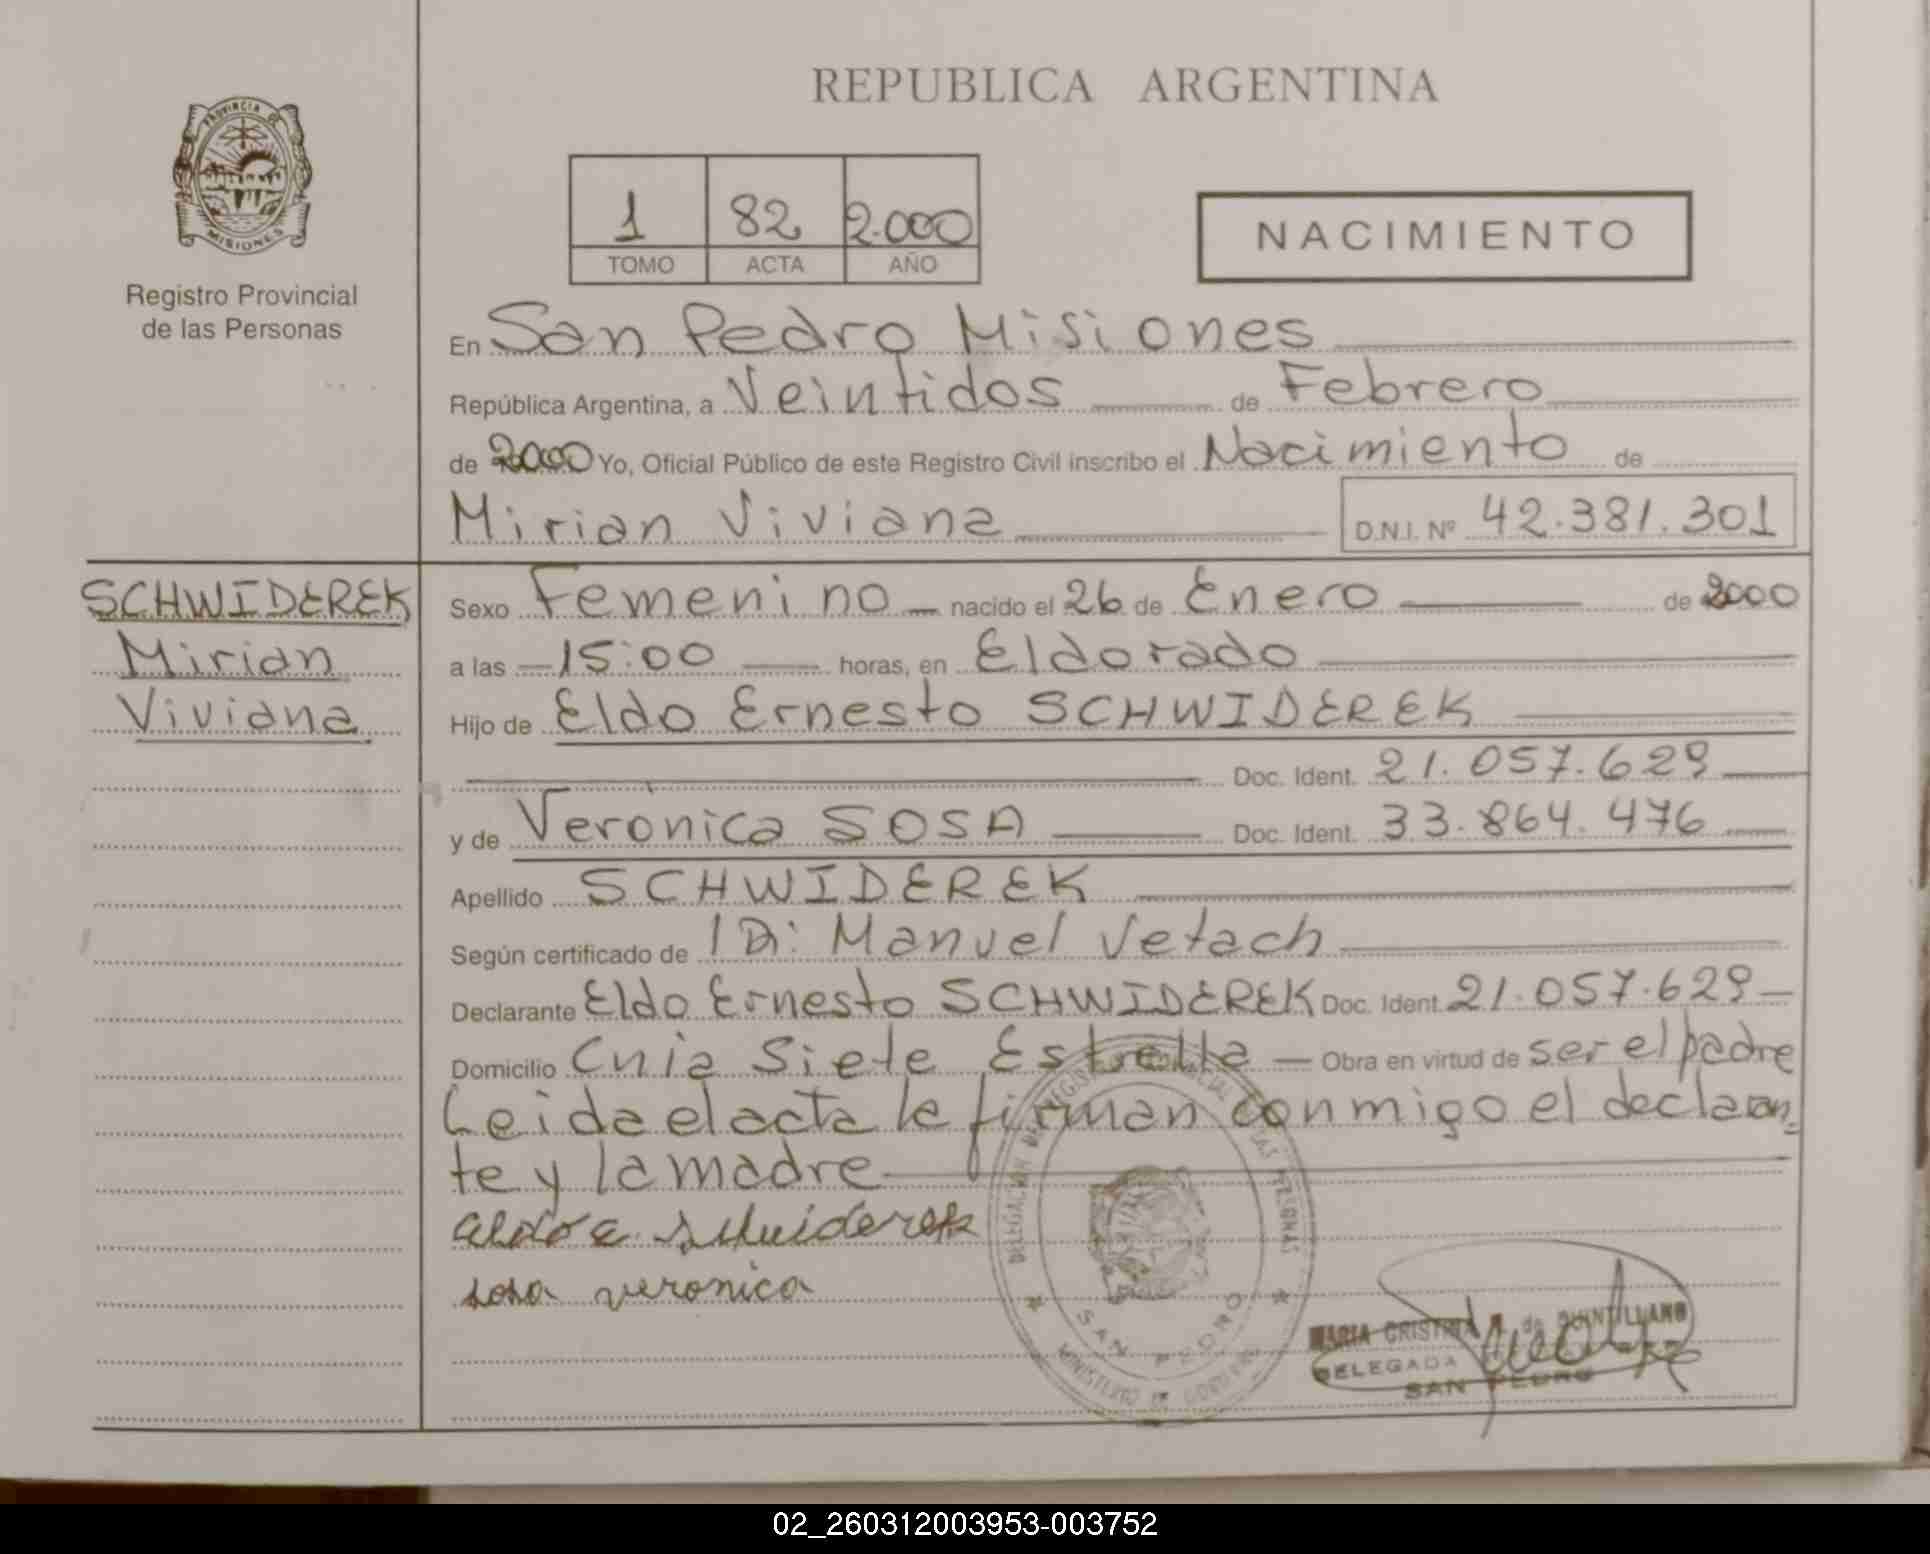 REPUBLICA ARGENTINA
PROVINCIA DE
MISIONES
Registro Provincial
de las Personas
1 82 2.000
TOMO ACTA AÑO
NACIMIENTO
En San Pedro Misiones
República Argentina, a Veintidos de Febrero
de 2000 Yo, Oficial Público de este Registro Civil inscribo el Nacimiento de
Mirian Viviana D.N.I. Nº 42.381.301
SCHWIDEREK
Mirian
Viviana
Sexo Femenino nacido el 26 de Enero de 2000
a las 15:00 horas, en Eldorado
Hijo de Eldo Ernesto SCHWIDEREK
Doc. Ident. 21.057.629
y de Verónica SOSA Doc. Ident. 33.864.476
Apellido SCHWIDEREK
Según certificado de Manuel Vetach
Declarante Eldo Ernesto SCHWIDEREK Doc. Ident. 21.057.629
Domicilio Cnia Siete Estrella Obra en virtud de ser el padre
Leida el acta la firman conmigo el declaran=
te y la madre
eldo e Schwiderek
sosa veronica
SAN PEDRO
MINISTERIO DE GOBIERNO
MARIA CRISTINA de QUINTILLANO
DELEGADA
SAN PEDRO
02_260312003953-003752